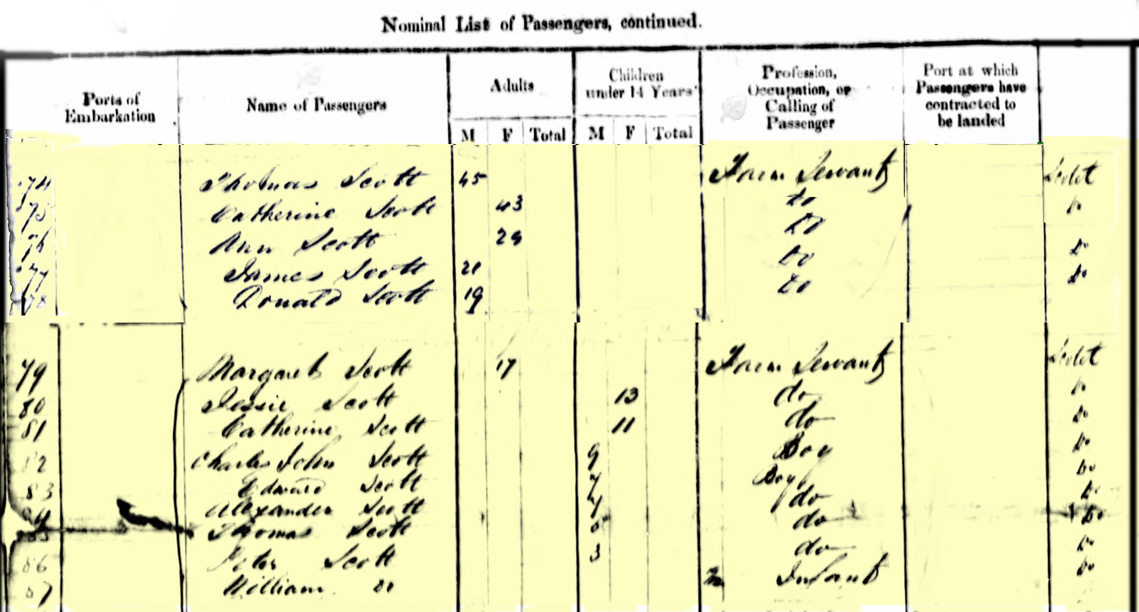 Nominal List of Passengers, continued.
Ports of Embarkation Name of Passengers Adults Children under 14 Years Profession, Occupation, or Calling of Passenger Port at which Passengers have contracted to be landed
M F Total M F Total
74 Thomas Scott 45 Farm Servant Scott
75 Catherine Scott 43 do
76 Ann Scott do do
77 James Scott do do
78 Donald Scott 19 do
79 Margaret Scott 17 Farm Servant Scott
80 Jessie Scott 13 do
81 Catherine Scott 11 do do
82 Charles John Scott 9 Boy do
83 Edward Scott 7 Boy do
84 Alexander Scott do do
85 Thomas Scott do do
86 Peter Scott 3 do do
87 William do Infant do